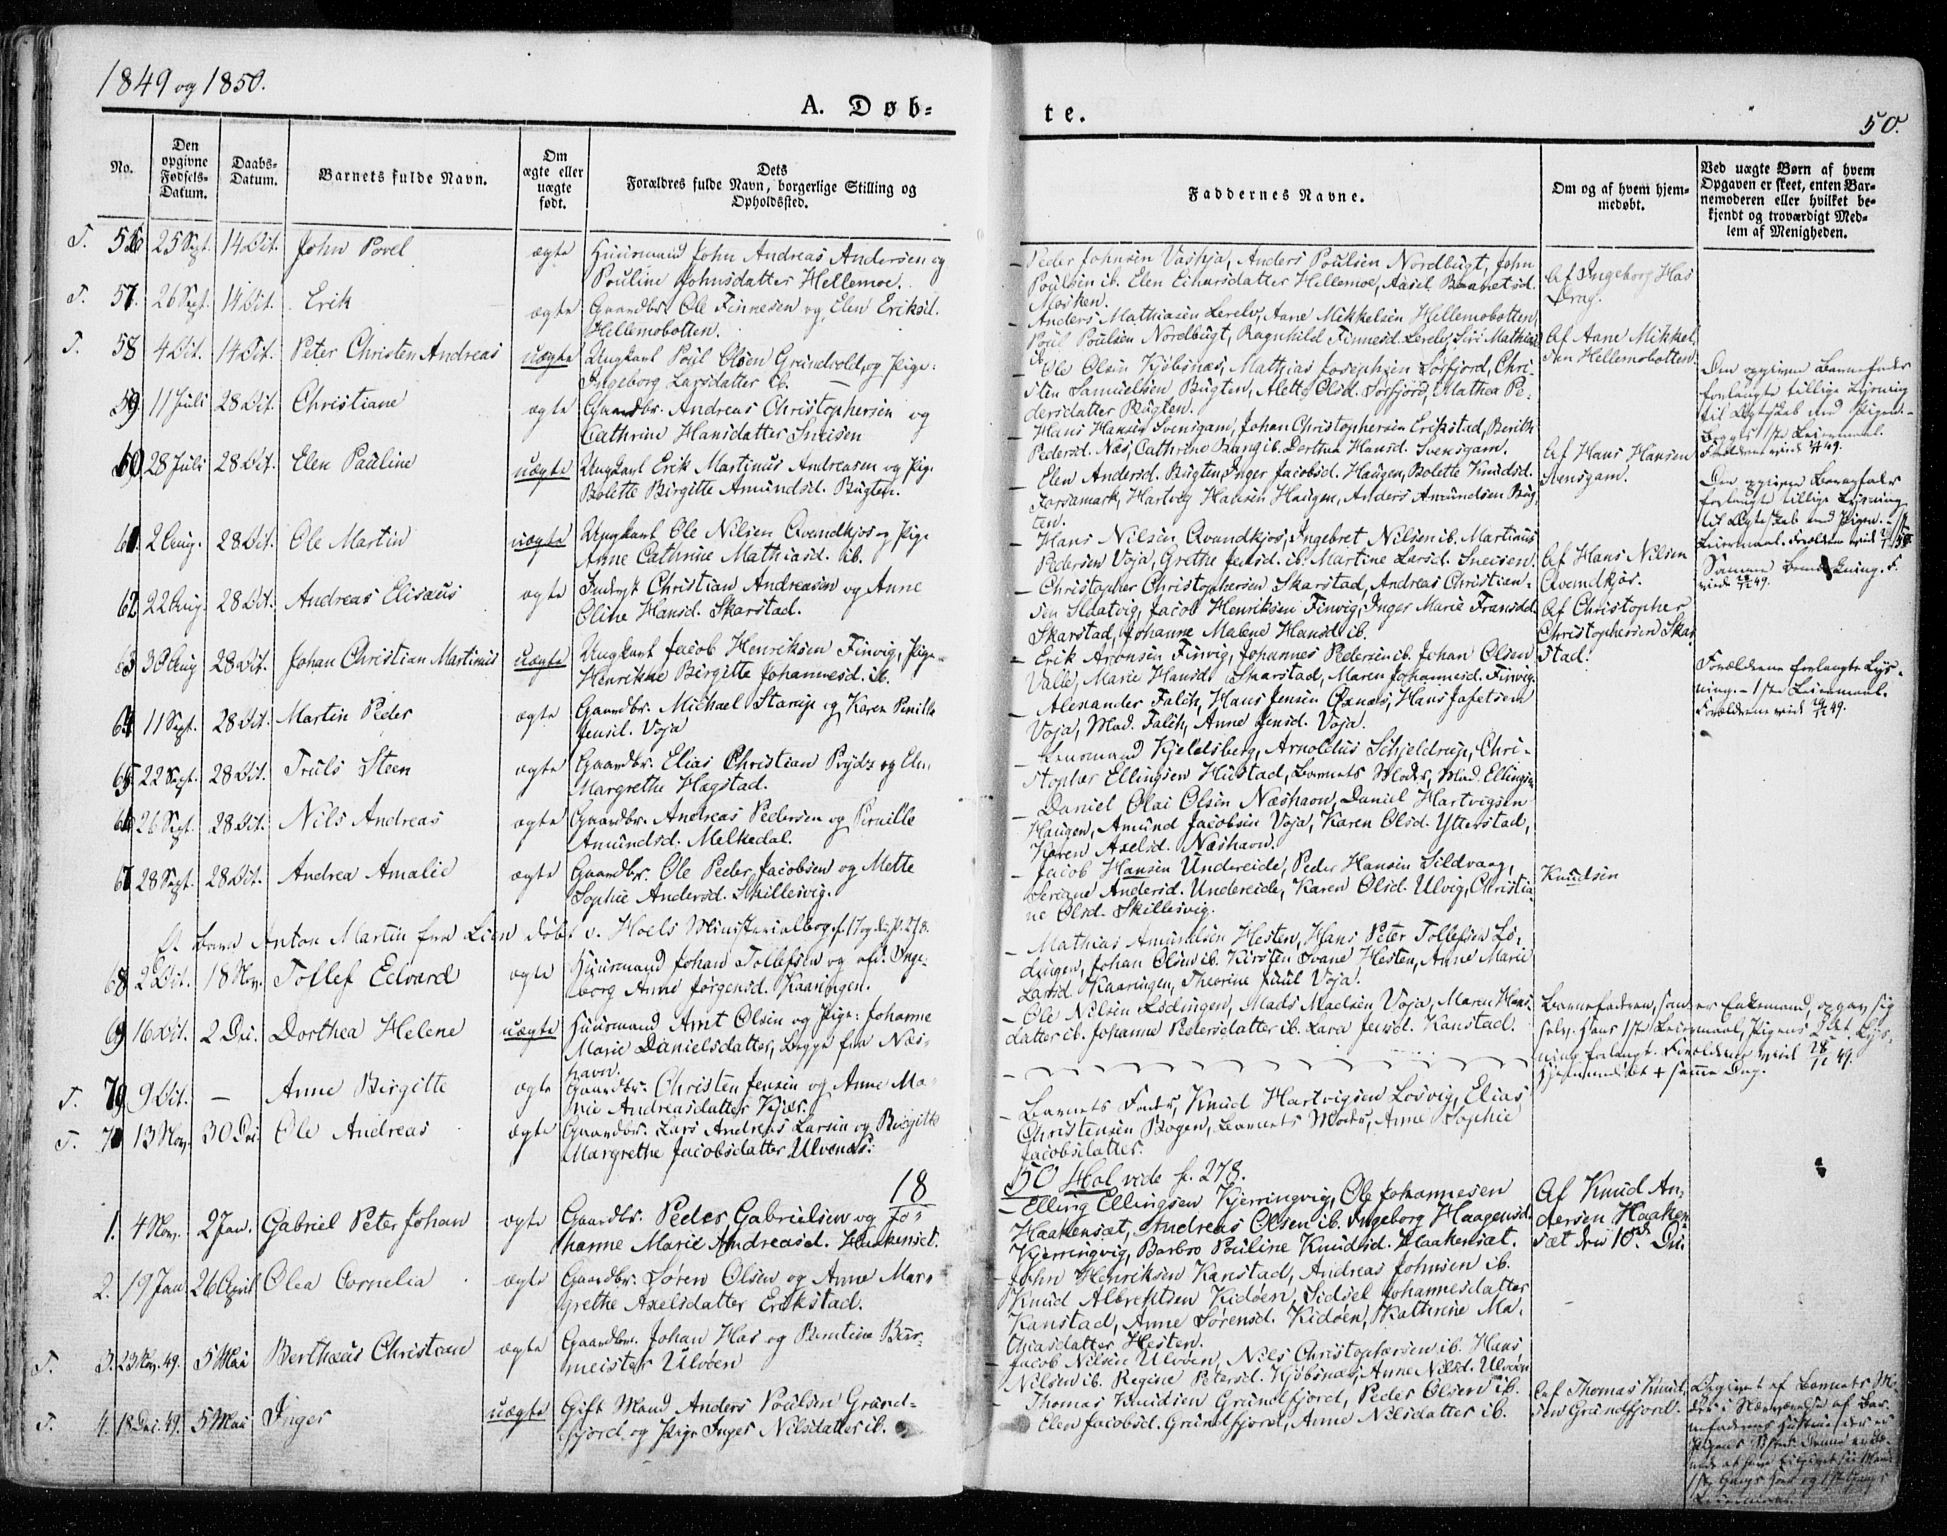 1849 og 1850.
A. Døb=
te.
50.
No.
Den opgivne Fødsels-Datum.
Daabs-Datum.
Barnets fulde Navn.
Om ægte eller uægte født.
Dets Forældres fulde Navn, borgerlige Stilling og Opholdssted.
Faddernes Navne.
Om og af hvem hjemmedøbt.
Ved uægte Børn af hvem Opgaven er skeet, enten Barnemoderen eller hvilket bekjendt og troværdigt Medlem af Menigheden.
T. 56 25 Sept. 14 Oct. John Povel ægte Huusmand John Andreas Andersen og
Pouline Johnsdatter Hellemoe.
Peder Johnsen Vashja, Anders Poulsen Nordbugt, John
Poulsen ib. Elen Einarsdatter Hellemoe, Aasel
Mosken.
Af Ingeborg Has
Drag.
T. 57. 26 Sept. 14 Oct. Erik ægte Gaardbr. Ole Finnesen og Elen Eriksd.
Hellemobotten.
Anders Mathiasen Lerelv, Aane Mikkelsen Hellemobotten,
Poul Poulsen Nordbugt, Ragnhild Finnesd. Lerelv, Siri Mathiasd
ib.
Af Aane Mikkelsen Hellemobotten.
T. 58 4 Oct. 14 Oct. Peter Christen Andreas uægte Ungkarl Poul Olsen Grundvold, og Pige:
Ingeborg Larsdatter ib.
Ole Olsen Kjøbsnæs, Mathias Josephsen Sørfjord, Christen Samuelsen Bugten, Alette Olsd. Sørfjord, Mathea Pedersdatter Bugten.
Den opgivne Barnefader
forlangte tillige Lysning
til Ægteskab med Pigen.
Begges 1ste Leiermaal.
59 11 Juli 28 Oct. Christiane ægte Gaardbr. Andreas Christophersen og
Cathrine Hansdatter Sneisen
Hans Hansen Svensgam, Johan Christophersen Erikstad, Berith
Pedersd. Næs, Cathrine Bang ib. Dorthea Hansd. Svensgam.
Af Hans Hansen
Svensgam.
60 28 Juli 28 Oct. Elen Pauline uægte Ungkarl Erik Martinus Andreasen og Pige
Bolette Birgitte Amundsd. Bugten.
Elen Andersd. Bugten, Inger Jacobsd. Haugen, Bolette Knudsd.
Forsamark, Hartvig Hansen Haugen, Anders Amundsen Bugten.
Den opgivne Barnefader
forlangte tillige Lysning
til Ægteskab med Pigen.
61. 2 Aug. 28 Oct. Ole Martin uægte Ungkarl Ole Nilsen Qvandkjos og Pige
Anne Cathrine Mathiasd. ib.
Hans Nilsen Qvandkjos, Ingebret Nilsen ib. Martinus
Pedersen Voja, Grethe Jensd. ib. Martine Larsd. Sneisen.
Af Hans Nilsen
Qvandkjos.
Samme Bemærkning.
62 22 Aug. 28 Oct. Andreas Elisæus ægte Inderst Christian Andreasen og Anne
Oline Hansd. Skarstad.
Christopher Christophersen Skarstad, Andreas Christiansen Slaatvig, Jacob Henriksen Finvig, Inger Marie Fransdd.
Skarstad, Johanne Malene Hansd. ib.
Af Christopher
Christophersen Skarstad.
63 30 Aug 28 Oct. Johan Christian Martinus uægte Ungkarl Jacob Henriksen Finvig, Pige
Henrikke Birgitte Johannesd. ib.
Erik Aronsen Finvig, Johannes Pedersen ib. Johan Olsen
Valle, Marie Hansd. Skarstad, Maren Johannesd. Finvig.
Forældrene forlangte Lysning. - 1ste Leiermaal.
64 11 Sept. 28 Oct. Martin Peder ægte Gaardbr. Michael Starup og Karen Pernille
Jensd. Voja
Alexander Falch, Hans Jensen Oxnæs, Hans Jafetsen
Voja, Mad. Falch, Anne Jensd. Voja.
65 22 Sept. 28 Oct. Truls Steen ægte Gaardbr. Elias Christian Prydz og Elen
Margrethe Hægstad.
Lensmand Kjeldsberg, Arnoldus Schjeldrup, Christopher Ellingsen Hustad, Barnets Moder, Mad. Ellingsen
66 26 Sept. 28 Oct. Nils Andreas ægte Gaardbr. Andreas Pedersen og Pernille
Amundsd. Melkedal.
Daniel Olai Olsen Næshavn, Daniel Hartvigsen
Haugen, Amund Jacobsen Voja, Karen Olsd. Ytterstad,
Karen Axelsd. Næshavn.
67 28 Sept. 28 Oct. Andrea Amalie ægte Gaardbr. Ole Peder Jacobsen og Mette
Sophie Andersd. Skillesvig.
Jacob Hansen Undereide, Peder Hansen Sildvaag,
Seriane Andersd. Undereide, Karen Olsd. Ulvig, Christiane Olsd. Skillesvig.
Knudsen
Et Barn Anton Martin fra Lien døbt v. Hoels Ministerialbog f. 17 og dito p. 278.
68 2 Oct. 18 Nov. Tollef Edvard ægte Huusmand Johan Tollefsen og afd. Ingeborg Anne Jørgensd. Kaaringen.
Mathias Amundsen Hesten, Hans Peter Tollefsen Lødingen, Johan Olsen ib. Kirsten Svane Hesten, Anne Marie
Larsd. Kaaringen, Theorine Juul Voja.
69 16 Oct. 2 Dec. Dorthea Helene uægte Huusmand Arnt Olsen og Pige: Johanne
Marie Danielsdatter, Begge fra Næshavn.
Ole Nilsen Lødingen, Mads Madsen Voja, Maren Hansdatter ib. Johanne Pedersdatter ib. Lava Jensd. Kanstad.
Barnefaderen, som er Enkemand, opgav sig
selv. Hans 1ste Leiermaal, Pigens 2det. Lysning forlangt. Forældrene viede 28/12 49.
T. 70 9 Oct. — Anne Birgitte ægte Gaardbr. Christen Jensen og Anne Marie Andreasdatter Kjær.
Hjemmedøbt + samme Dag.
T. 71 13 Nov. 30 Dec. Ole Andreas ægte Gaardbr. Lars Andreas Larsen og Birgitte
Margrethe Jacobsdatter Ulvenæs.
Barnets Fader, Knud Hartvigsen Losvig, Elias
Christensen Bogen, Barnets Moder, Anne Sophie
Jacobsdatter.
18
50 Hol vide f. 278.
1. 4 Nov. 2 Jan. Gabriel Peter Johan ægte Gaardbr. Peder Gabrielsen og Johanne Marie Andreasd. Haakensæt.
Elling Ellingsen Kjerringvig, Ole Johannesen
Haakensæt, Andreas Olsen ib. Ingeborg Haagensd.
Kjerringvig, Barbro Pouline Knudsd. Haakensæt.
Af Knud Andersen Haakensæt den 10de Dec.
2. 19 Jan. 26 April Olea Cornelia ægte Gaardbr. Søren Olsen og Anne Margrethe Axelsdatter Erikstad.
John Henriksen Kanstad, Andreas Johnsen ib.
Knud Albrektsen Kidøen, Sidsel Johannesdatter
Kanstad, Anne Sørensd. Kidøen, Kathrine Mathiasdatter Hesten.
T. 3. 23 Nov. 49. 5 Mai Berthæus Christian ægte Gaardbr. Johan Has og Berntine Burmeister Ulvøen
Jacob Nilsen Ulvøen, Nils Christophersen ib. Hans
Nilsen ib. Regine Petersd. Kjøbsnæs, Anne Nilsd. Ulvøen
T. 4. 18 Dec. 49. 5 Mai Inger uægte Gift Mand Anders Poulsen Grundfjord og Pige Inger Nilsdatter ib.
Thomas Knudsen Grundfjord, Peder Olsen ib.
Elen Jacobsd. Grundfjord, Anne Nilsdatter ib.
Af Thomas Knudsen Grundfjord.
Opgivet af Barnets Moder i Nærværelse af Barnefaderens Hustrue